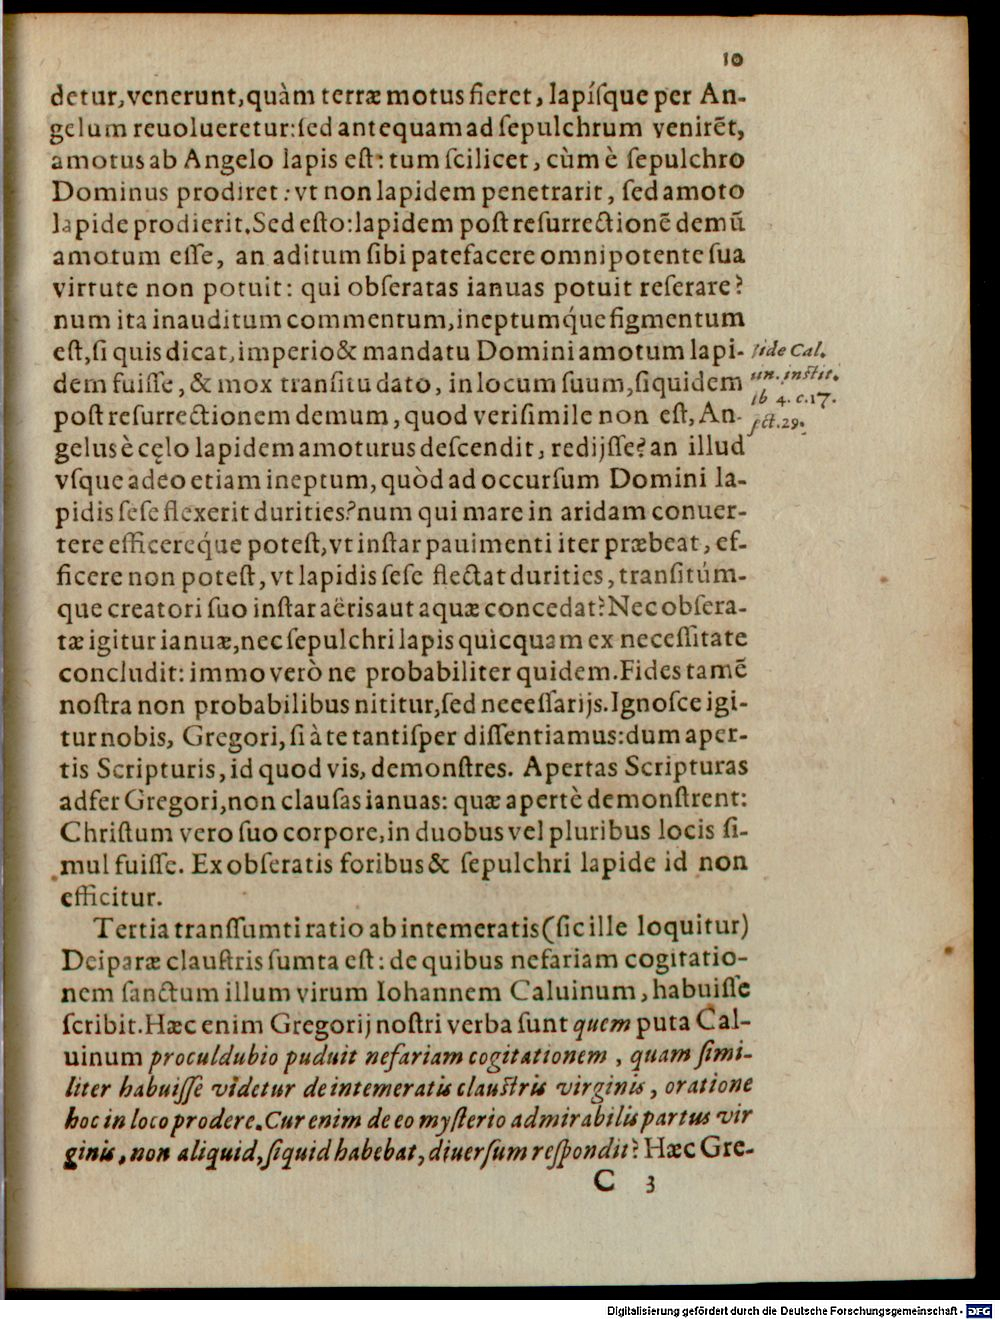 10
detur, venerunt, quàm terræ motus fieret, lapísque per An-
gelum reuolueretur: sed antequam ad sepulchrum venirẽt,
amotus ab Angelo lapis est: tum scilicet, cùm è sepulchro
Dominus prodiret: vt non lapidem penetrarit, sed amoto
lapide prodierit. Sed esto: lapidem post resurrectionẽ demũ
amotum esse, an aditum sibi patefacere omnipotente sua
virtute non potuit: qui obseratas ianuas potuit reserare?
num ita inauditum commentum, ineptumq́ue figmentum
est, si quis dicat, imperio & mandatu Domini amotum lapi-
dem fuisse, & mox transitu dato, in locum suum, siquidem
post resurrectionem demum, quod verisimile non est, An-
gelus è cęlo lapidem amoturus descendit, redijsse? an illud
vsque adeo etiam ineptum, quòd ad occursum Domini la-
pidis sese flexerit durities? num qui mare in aridam conuer-
tere efficereq́ue potest, vt instar pauimenti iter præbeat, ef-
ficere non potest, vt lapidis sese flectat durities, transitúm-
que creatori suo instar aëris aut aquæ concedat? Nec obsera-
tæ igitur ianuæ, nec sepulchri lapis quicquam ex necessitate
concludit: immo verò ne probabiliter quidem. Fides tamẽ
nostra non probabilibus nititur, sed necessarijs. Ignosce igi-
tur nobis, Gregori, si à te tantisper dissentiamus: dum aper-
tis Scripturis, id quod vis, demonstres. Apertas Scripturas
adfer Gregori, non clausas ianuas: quæ apertè demonstrent:
Christum vero suo corpore, in duobus vel pluribus locis si-
mul fuisse. Ex obseratis foribus & sepulchri lapide id non
efficitur.
Tertia transsumti ratio ab intemeratis (sic ille loquitur)
Deiparæ claustris sumta est: de quibus nefariam cogitatio-
nem sanctum illum virum Iohannem Caluinum, habuisse
scribit. Hæc enim Gregorij nostri verba sunt quem puta Cal-
uinum proculdubio puduit nefariam cogitationem, quam simi-
liter habuisse videtur de intemeratis claustris virginis, oratione
hoc in loco prodere. Cur enim de eo mysterio admirabilis partus vir
ginis, non aliquid, siquid habebat, diuersum respondit? Hæc Gre-
C 3
ide Cal.
un. instit.
ib 4. c. 17.
ect. 29.
Digitalisierung gefördert durch die Deutsche Forschungsgemeinschaft - DFG